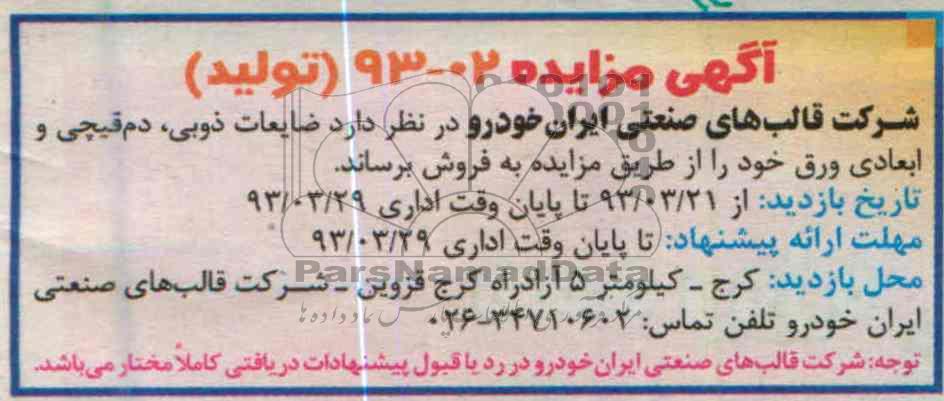 آگهی مزایده ۰۲-۹۳ (تولید)
شرکت قالب‌های صنعتی ایران خودرو در نظر دارد ضایعات ذوبی، دم‌قیچی و
ابعادی ورق خود را از طریق مزایده به فروش برساند.
تاریخ بازدید: از ۹۳/۰۳/۲۱ تا پایان وقت اداری ۹۳/۰۳/۲۹
مهلت ارائه پیشنهاد: تا پایان وقت اداری ۹۳/۰۳/۲۹
ParsNamadData
محل بازدید: کرج - کیلومتر ۵ آزادراه کرج قزوین - شرکت قالب‌های صنعتی
ایران خودرو تلفن تماس: ۳۴۷۱۰۶۰۲-۰۲۶
توجه: شرکت قالب‌های صنعتی ایران خودرو در رد یا قبول پیشنهادات دریافتی کاملاً مختار می‌باشد.